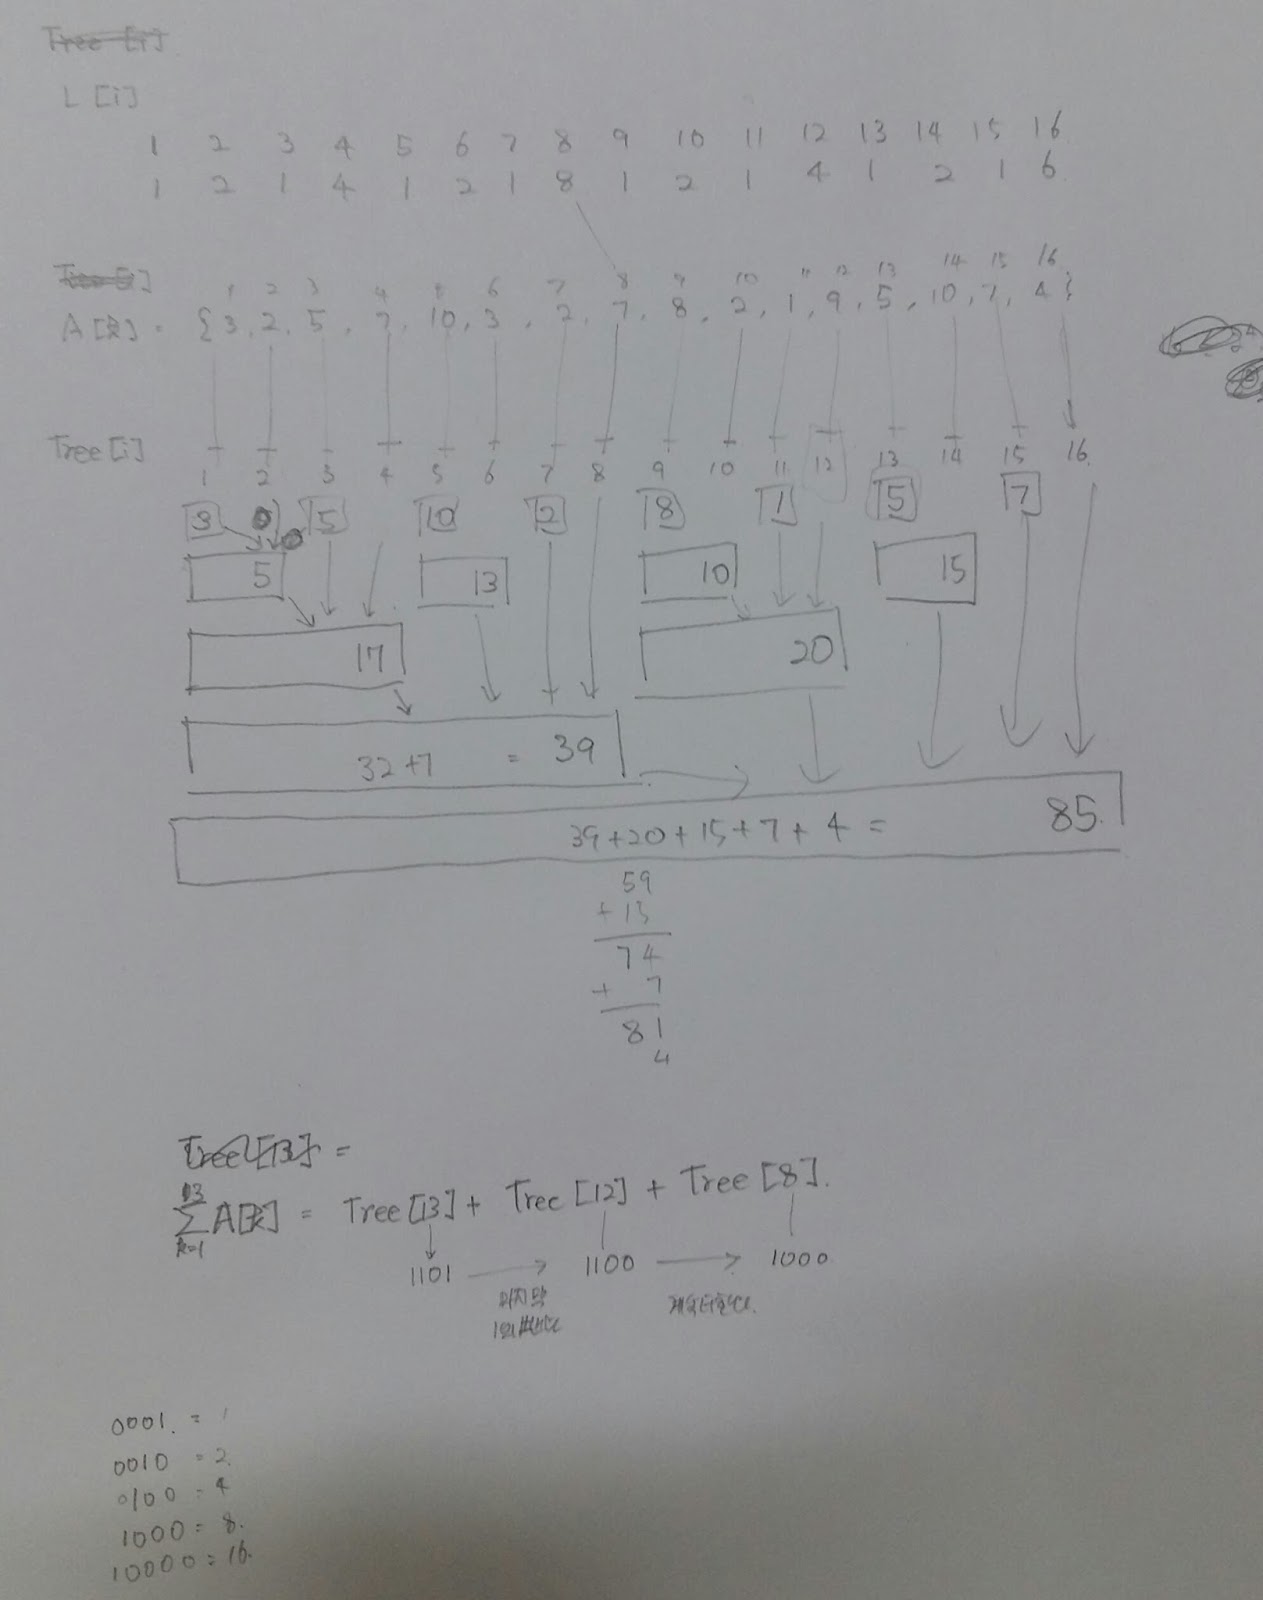 Tree [i]
L [i]
1 2 3 4 5 6 7 8 9 10 11 12 13 14 15 16
1 2 1 4 1 2 1 8 1 2 1 4 1 2 1 6
1 2 3 4 5 6 7 8 9 10 11 12 13 14 15 16
A[k] = {3, 2, 5, 7, 10, 3, 2, 7, 8, 2, 1, 9, 5, 10, 7, 4}
Tree[i]
1 2 3 4 5 6 7 8 9 10 11 12 13 14 15 16
3 5 10 2 8 1 5 7
5 13 10 15
17 20
32+7 = 39
39+20+15+7+4 = 85
59
+ 15
74
+ 7
81
4
Tree[13] =
13
∑ A[k] = Tree[13] + Tree[12] + Tree[8].
k=1
1101 → 1100 → 1000
마지막
1의
0001. = 1
0010 = 2.
0100 = 4
1000 = 8.
10000 = 16.